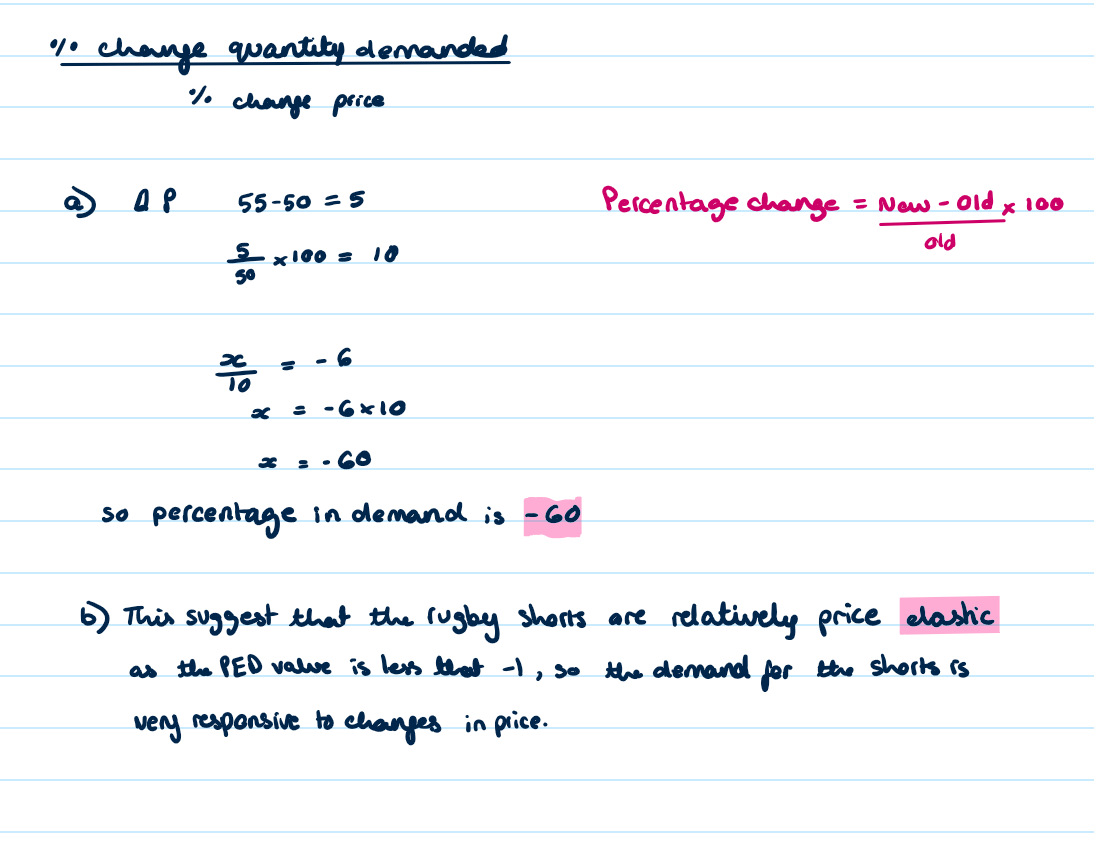 % change quantity demanded
% change price
a) Δ P 55-50 = 5
Percentage change = New - Old x 100
old
5
50 x 100 = 10
x
10 = - 6
x = -6 x 10
x = - 60
so percentage in demand is -60
b) This suggest that the rugby shorts are relatively price elastic
as the PED value is less that -1, so the demand for the shorts is
very responsive to changes in price.